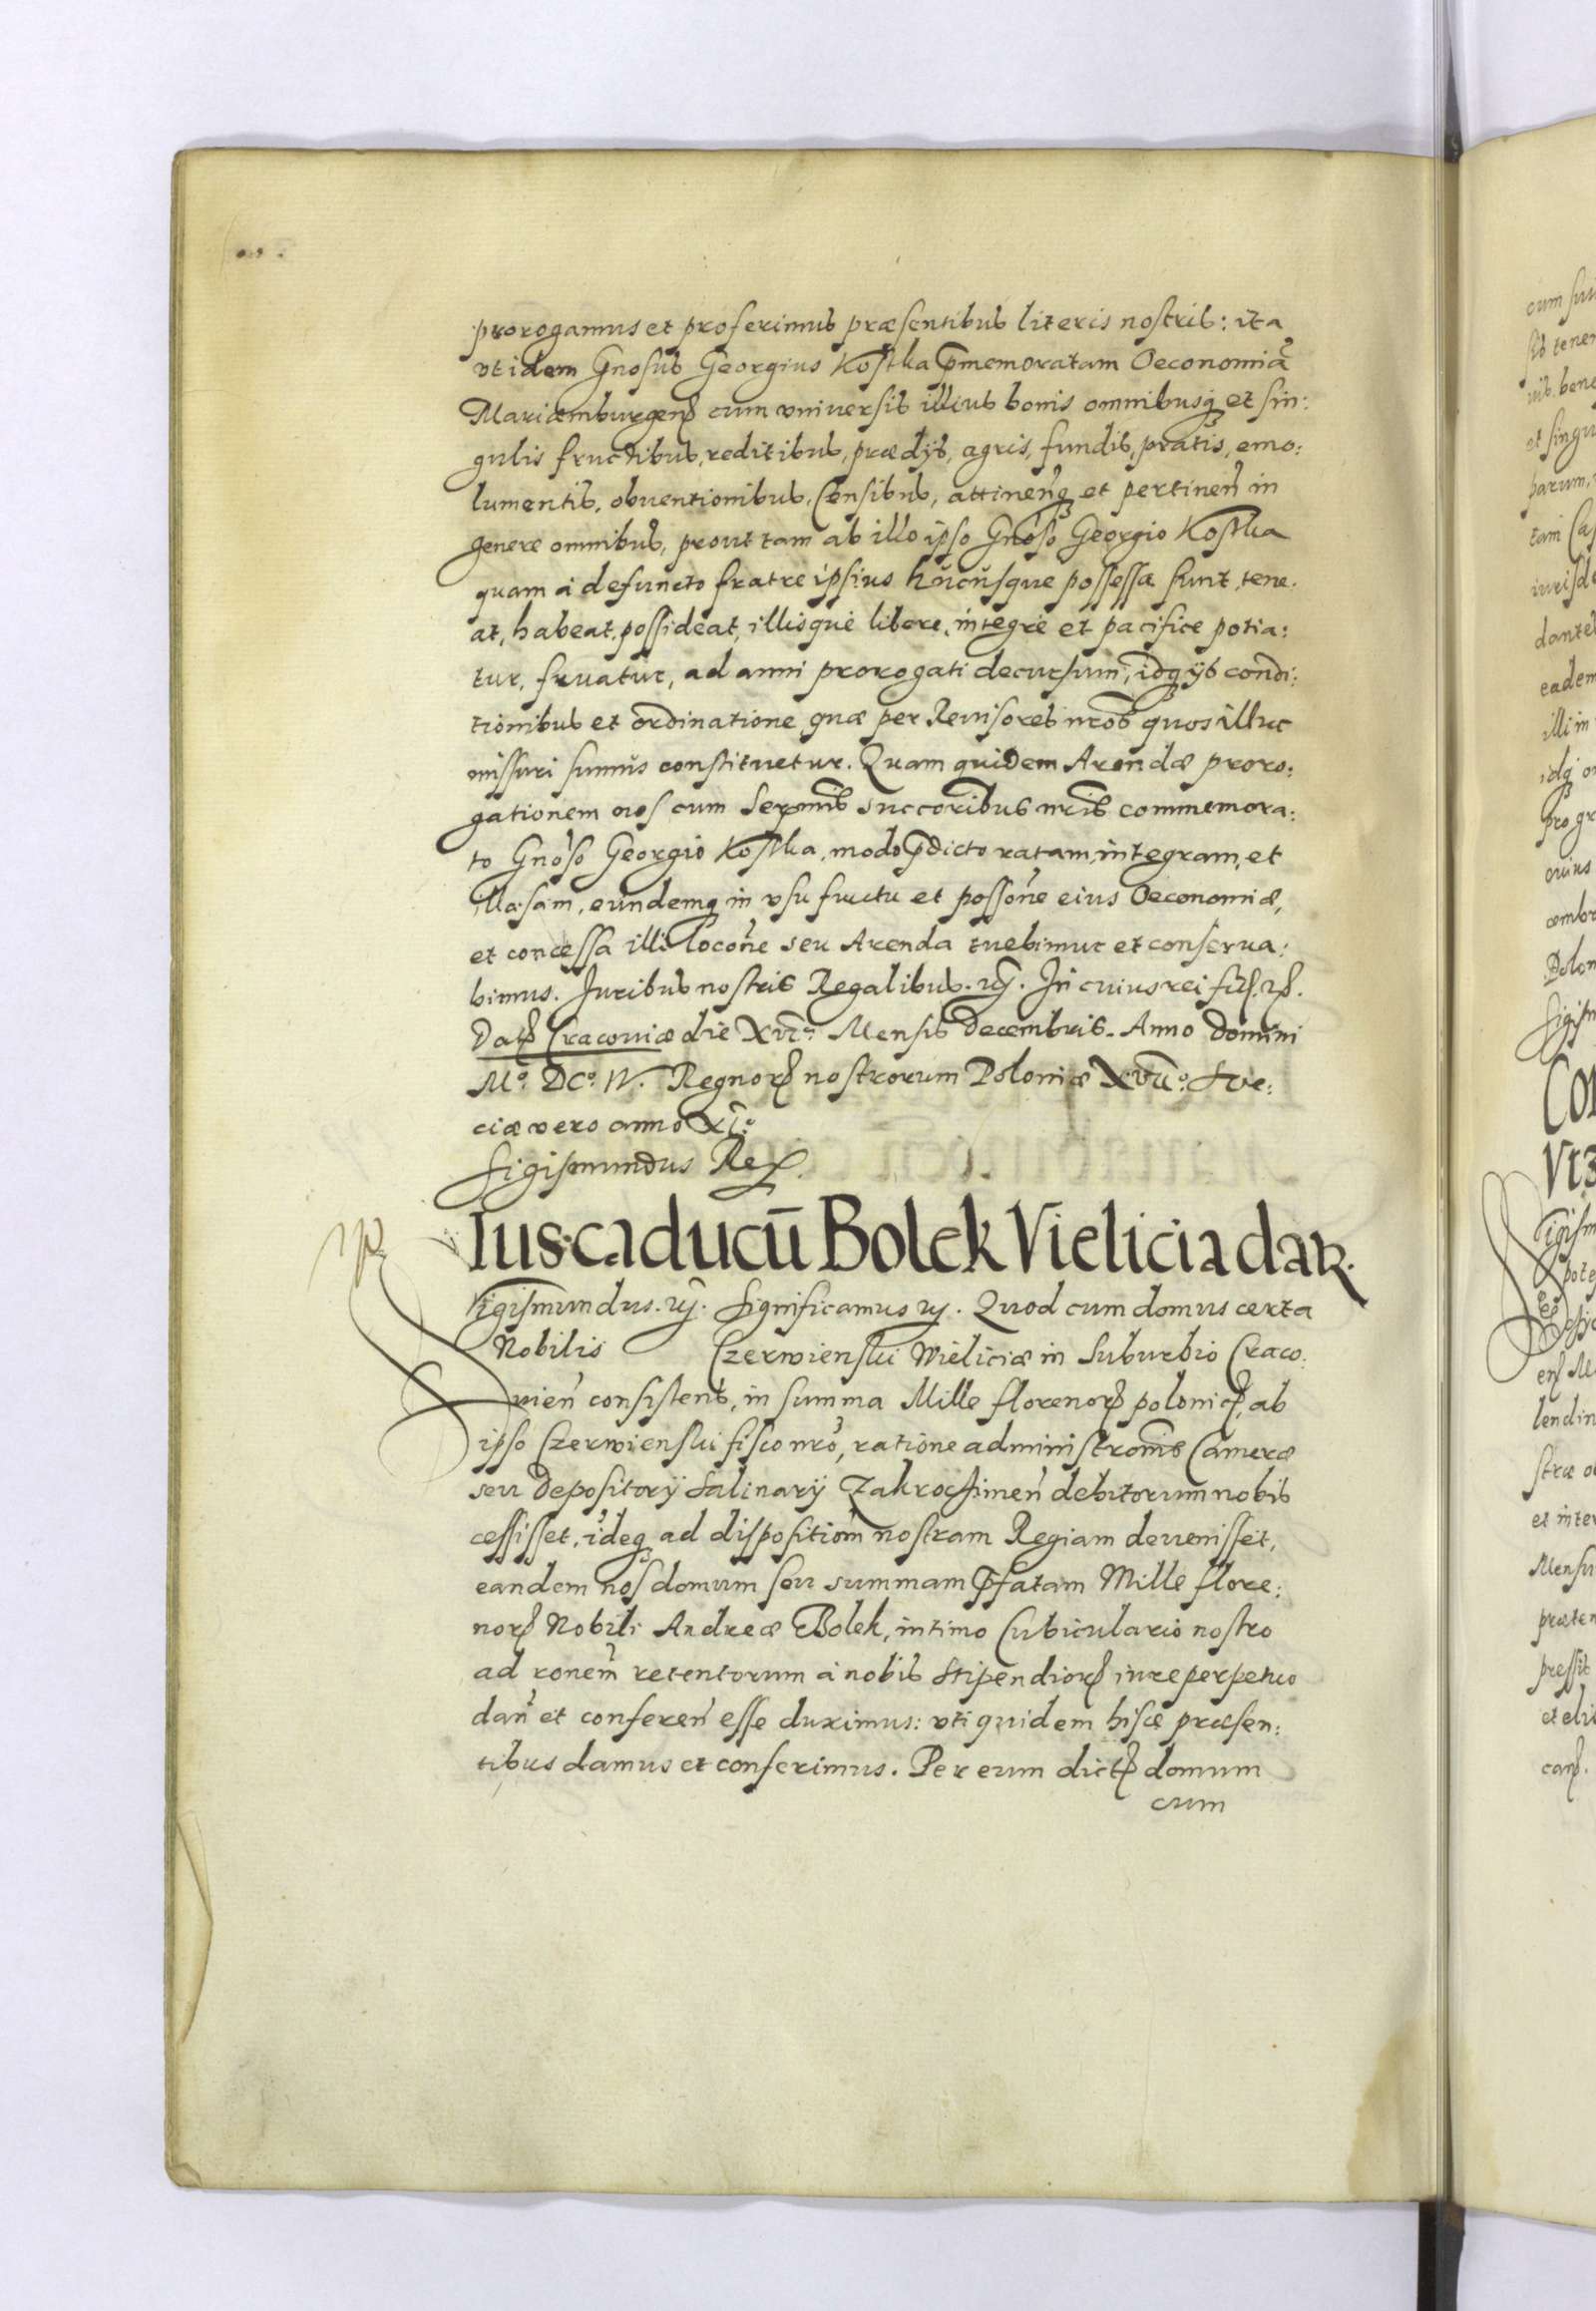 prorogamus et proferimus præsentibus literis nostris: ita
vt idem Gnosus Georgius Kostka p̄memoratam Oeconomiã
Mariæmburgenß cum vniversis illius bonis omnibusq́ et sin:
gulis fructibus, reditibus, prædijs, agris, fundis, pratis, emo:
lumentis, obventionibus, Censibus, attineñq́ et pertineñ in
genere omnibus, prout tam ab illo ipso Gnoso Georgio Kostka
quam à defuncto fratre ipsius hucusque possessa sunt, tene.
at, habeat, possideat, illisque libere, integre et pacifice potia:
tur, fruatur, ad anni prorogati decursum, idq́ ijs condi:
tionibus et ordinatione quæ per Revisores nros quos illuc
missuri sumus constituetur. Quam quidem Arendæ proro:
gationem nos cum Sermis succoribus nris commemora:
to Gnoso Georgio Kostka, modo p̄dicto ratam, integram, et
illæsam, eundemq́ in vsu fructu et possone eius Oeconomiæ,
et concessa illi locone seu Arenda tuebimur et conserva:
bimus. Juribus nostris Regalibus. rß. In cuius rei fiď. rß.
Datß Cracoviæ die XVI.a Mensis Decembris. Anno Domini
Mo. DCo. IV. Regnorß nostrorum Poloniæ XVIIo. Sve:
ciæ vero anno XIo
Sigismundus Rex.
Ius caducū Bolek Vielicia datr.
Sigismundus. rß. Significamus rß. Quod cum domus certa
Nobilis Czerwienski Wieliciæ in Suburbio Craco:
vieñ consistens, in summa Mille florenorß polonicß, ab
ipso Czerwienski fisco nro, ratione administronis Cameræ
seu Depositorij Salinarij Zakrocziméñ debitorum nobis
cessisset, ideq́ ad dispositiom nostram Regiam devenisset,
eandem nos domum seu summam p̄fatam Mille flore:
norß Nobili Andreæ Bolek, intimo Cubiculario nostro
ad ronem retentorum à nobis Stipendiorß iure perpetuo
dañ et confereñ esse duximus: vti quidem hisce præsen:
tibus damus et conferimus. Per eum dictß domum
cum